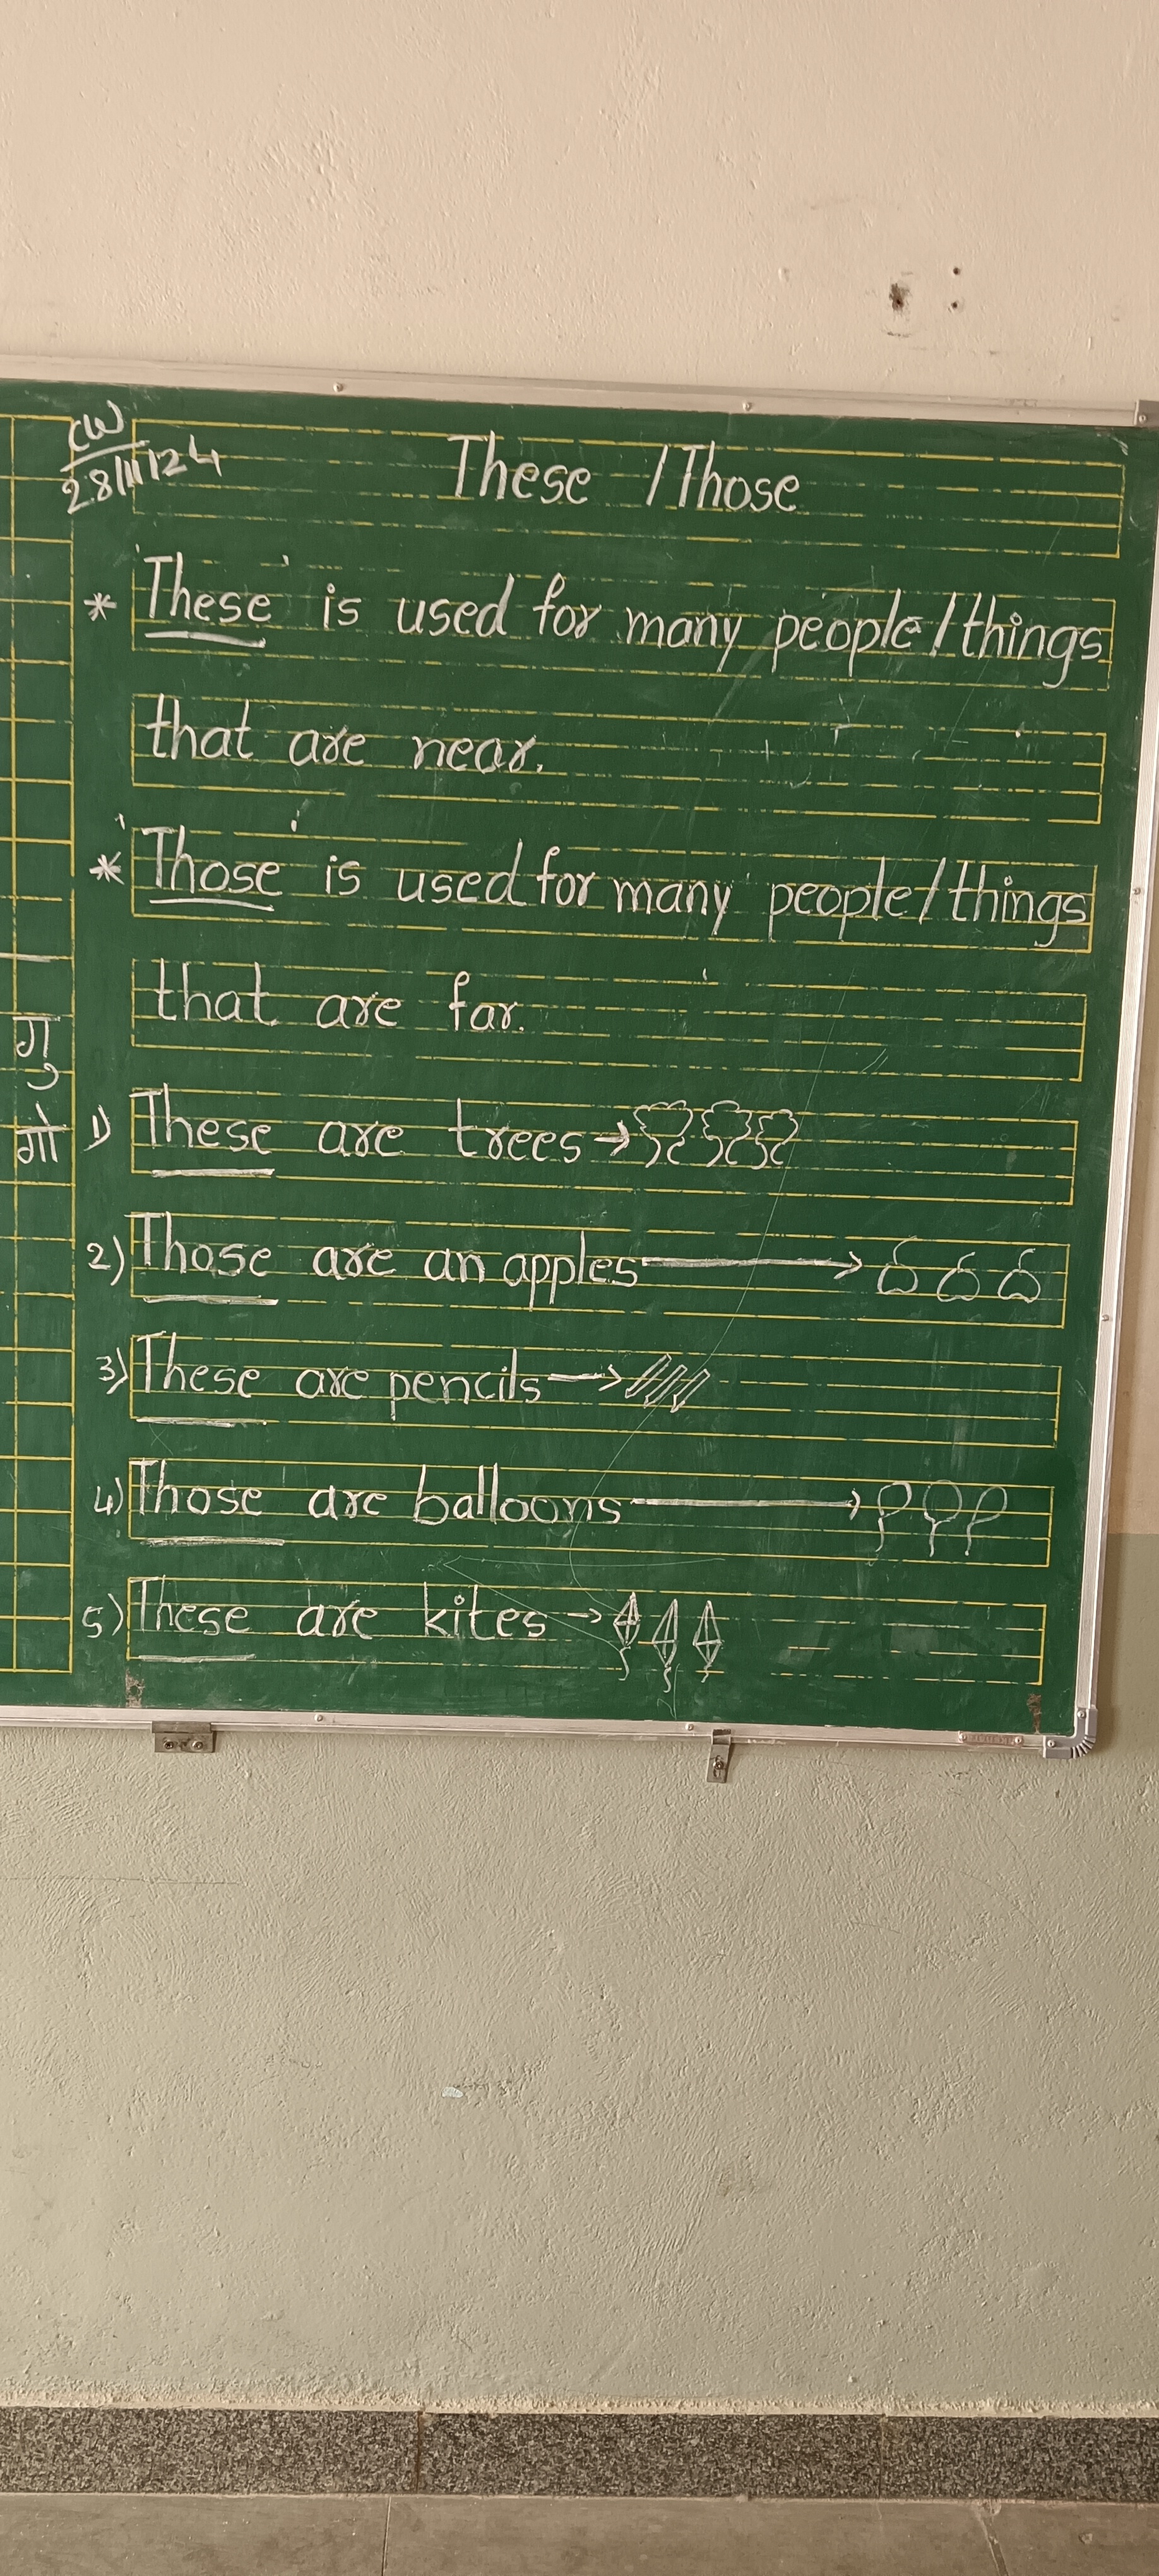 CW
28/11/24
These / Those
* 'These' is used for many people/things
that are near.
* 'Those' is used for many people/things
that are far.
1) These are trees →
2) Those are an apples →
3) These are pencils →
4) Those are balloons →
5) These are kites →
गु
गो